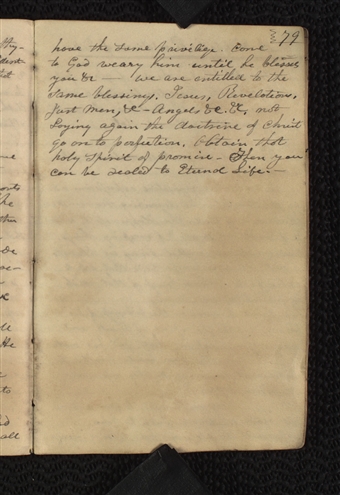 79
have the same privilege. Come
to God weary him until he blesses
you &c — we are entitled to the
same blessings, Jesus, Revelations,
Just Men, &c - Angels &c. &c, not
Laying again the doctrine of Christ
go on to perfection. Obtain that
holy spirit of promise - Then you
can be sealed to Eternal Life. —